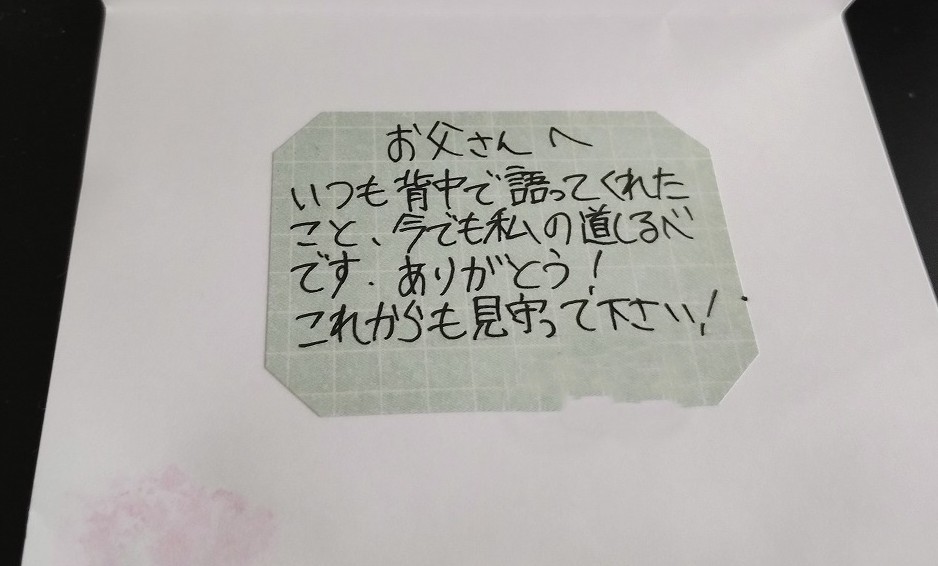 お父さんへ
いつも背中で語ってくれた
こと、今でも私の道しるべ
です.ありがとう!
これからも見守って下さい!